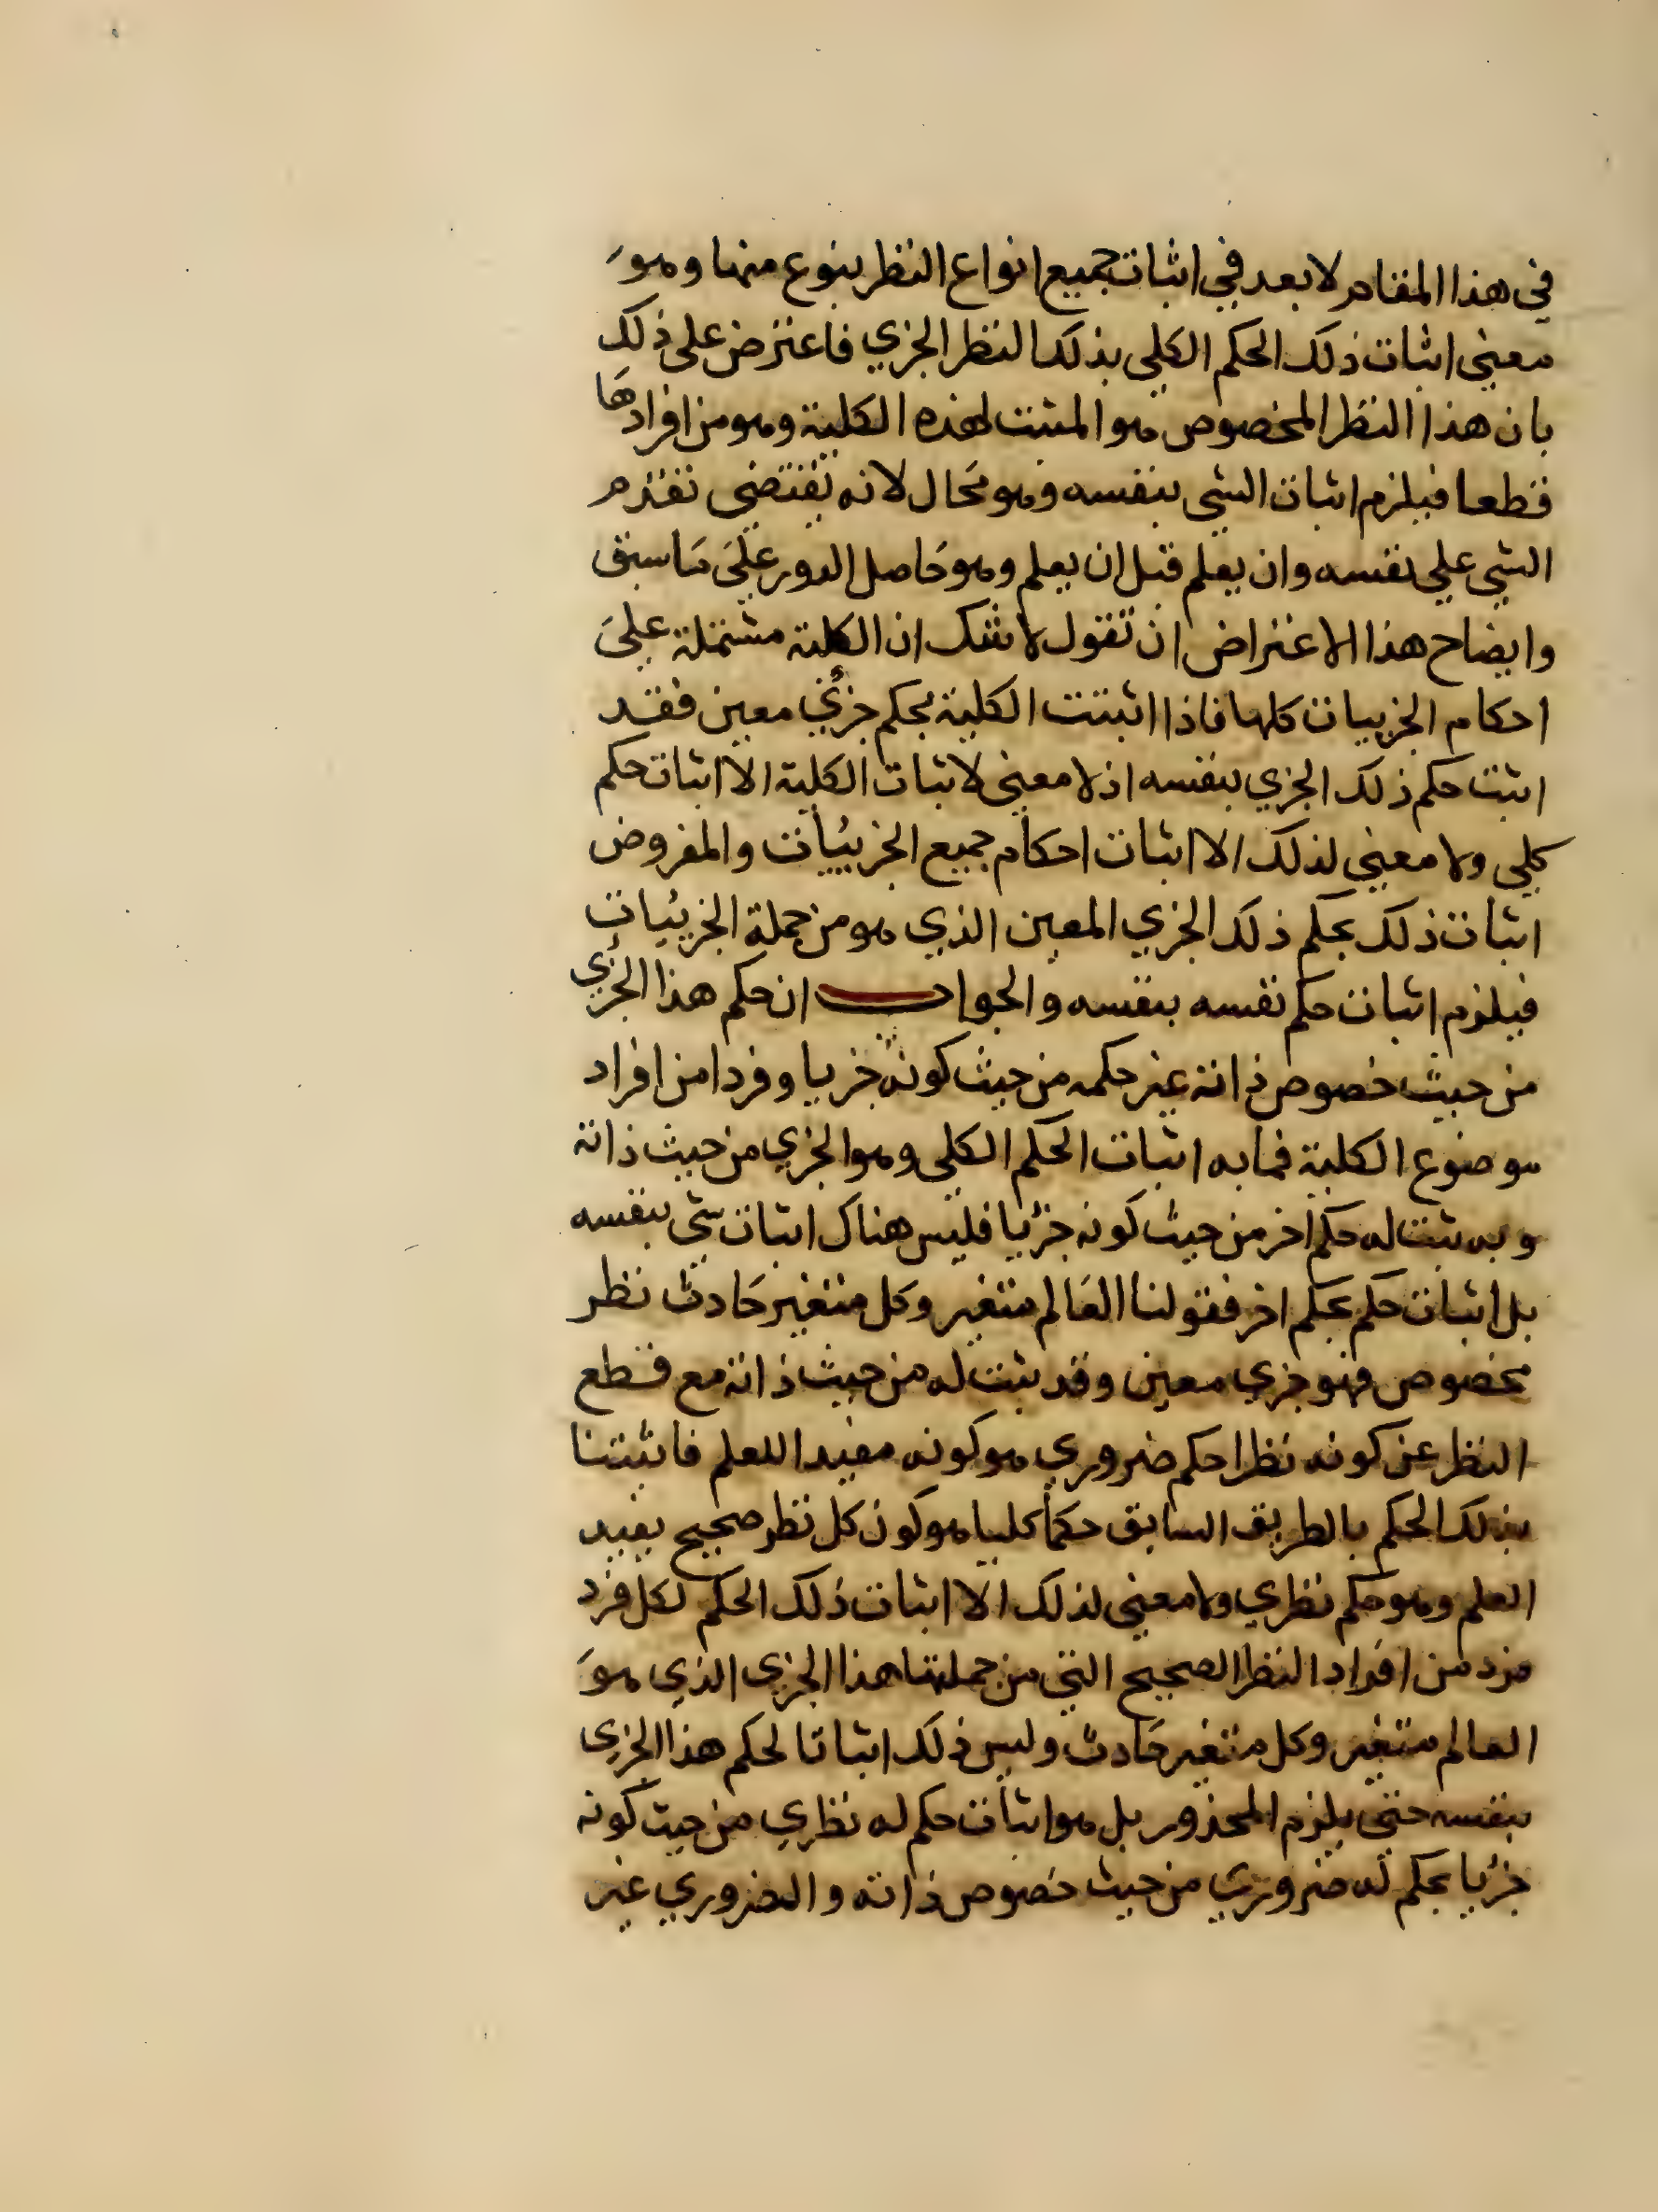 في هذا المقام لا بعد في اثبات جميع انواع النظر بنوع منها وهو
معنى اثبات ذلك الحكم الكلي بذلك النظر الجزي فاعترض على ذلك
بان هذا النظر المخصوص هو المثبت لهذه الكلية وهو من افرادها
قطعا فيلزم اثبات الشي بنفسه وهو محال لانه يقتضي تقدم
الشي علي نفسه وان يعلم قبل ان يعلم وهو حاصل الدور علي ما سبق
وايضاح هذا الاعتراض ان تقول لا شك ان الكلية مشتملة علي
احكام الجزييات كلها فاذا اثبتت الكلية بحكم جزئي معين فقد
اثبت حكم ذلك الجزي بنفسه اذ لا معنى لاثبات الكلية الا اثبات حكم
كلي ولا معنى لذلك الا اثبات احكام جميع الجزييات والمفروض
اثبات ذلك بحكم ذلك الجزي المعين الذي هو من جملة الجزئيات
فيلزم اثبات حكم نفسه بنفسه والجواب ان حكم هذا الجزي
من حيث خصوص ذاته غير حكمه من حيث كونه جزيا وفردا من افراد
موضوع الكلية فما به اثبات الحكم الكلي وهو الجزي من حيث ذاته
وبه يثبت له حكم اخر من حيث كونه جزئيا فليس هناك اثبات شي بنفسه
بل اثبات حكم بحكم اخر فقولنا العالم متغير وكل متغير حادث نظر
مخصوص فهو جزي معين وقد ثبت له من حيث ذاته مع قطع
النظر عن كونه نظرا حكم ضروري هو كونه مفيدا للعلم فاثبتنا
بذلك الحكم بالطريق السابق حكما كليا هو كون كل نظر صحيح يفيد
العلم وهو حكم نظري ولا معنى لذلك الا اثبات ذلك الحكم لكل فرد
فرد من افراد النظر الصحيح التي من جملتها هذا الجزي الذي هو
العالم متغير وكل متغير حادث وليس ذلك اثباتا لحكم هذا الجزي
بنفسه حتى يلزم المحذور بل هو اثبات حكم له نظري من حيث كونه
جزئيا بحكم له ضروري من حيث خصوص ذاته والضروري غير